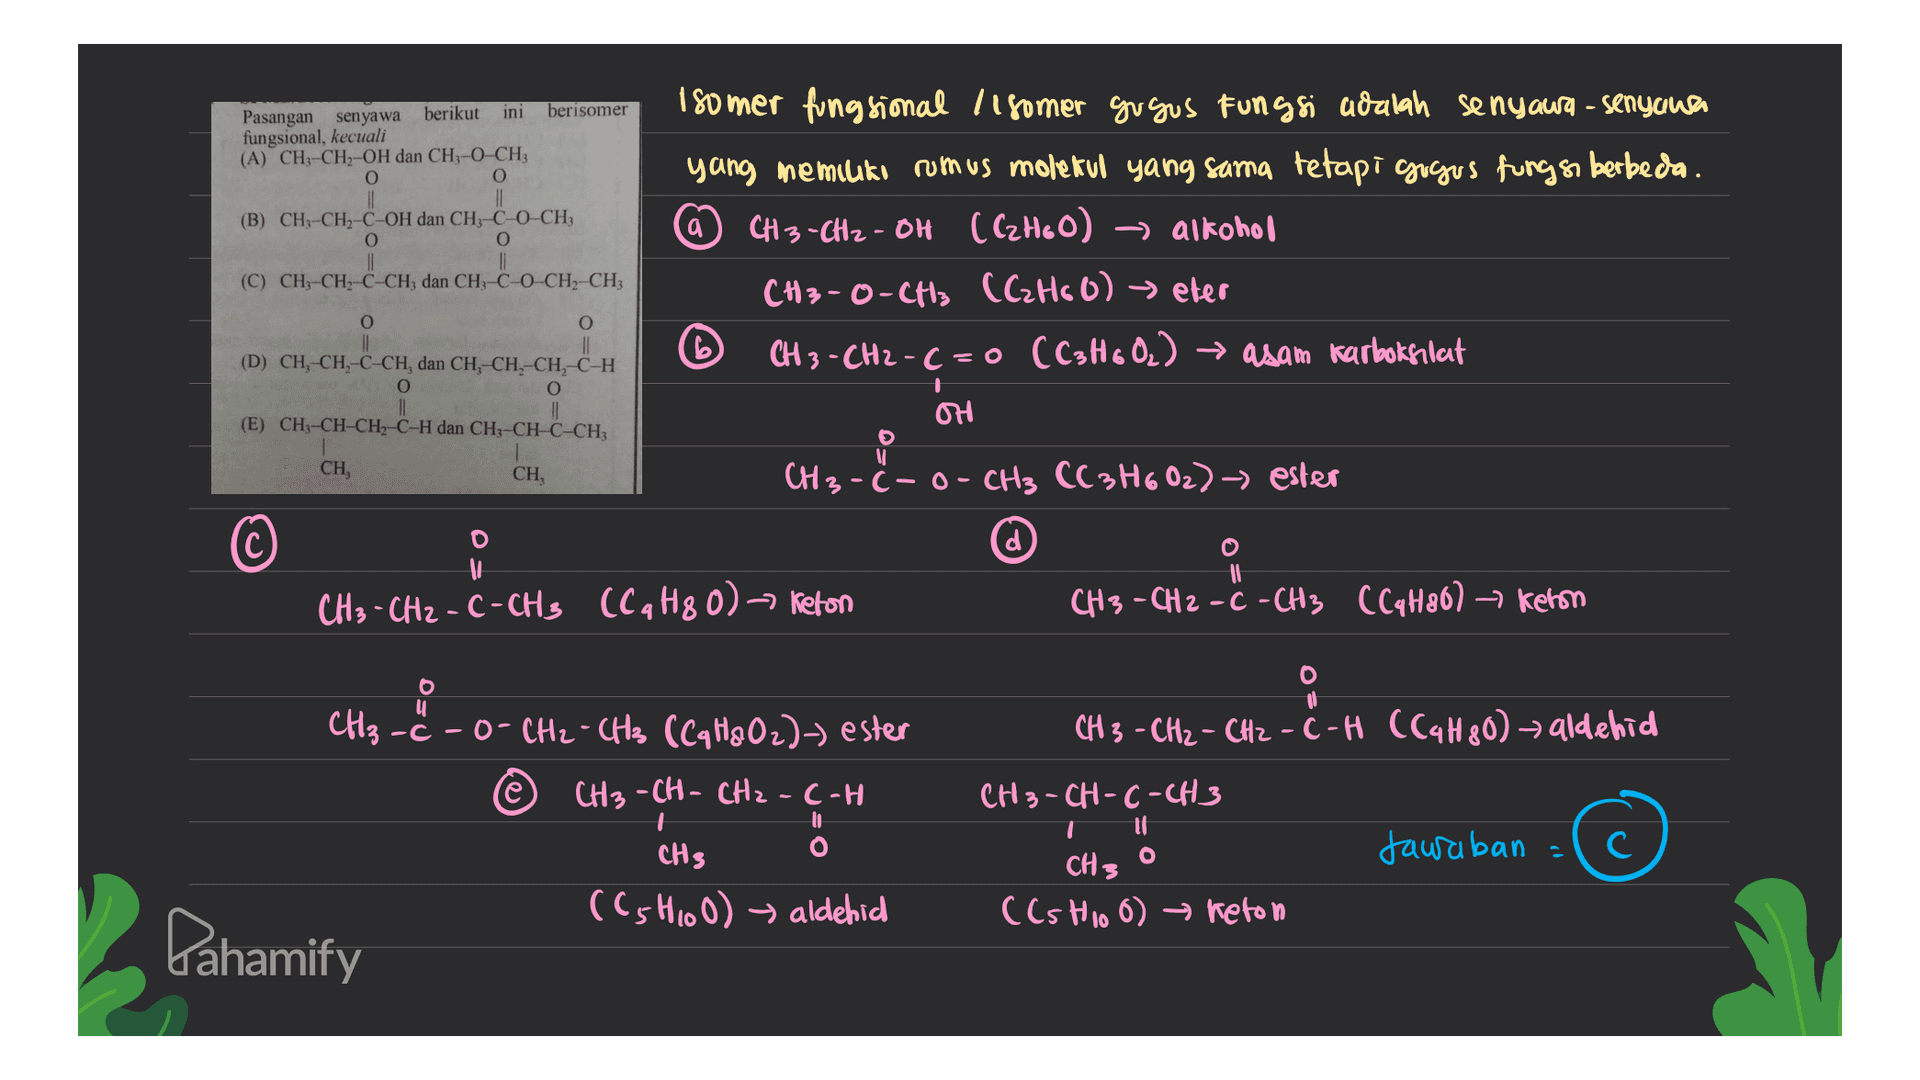 Pasangan senyawa berikut ini berisomer
fungsional, kecuali
(A) CH₃–CH₂–OH dan CH₃–O–CH₃
O O
|| ||
(B) CH₃–CH₂–C–OH dan CH₃–C–O–CH₃
O O
|| ||
(C) CH₃–CH₂–C–CH₃ dan CH₃–C–O–CH₂–CH₃
O O
|| ||
(D) CH₃–CH₂–C–CH₃ dan CH₃–CH₂–CH₂–C–H
O O
|| ||
(E) CH₃–CH–CH₂–C–H dan CH₃–CH–C–CH₃
| |
CH₃ CH₃
Isomer fungsional / isomer gugus fungsi adalah senyawa-senyawa
yang memiliki rumus molekul yang sama tetapi gugus fungsi berbeda.
(a) CH3-CH2-OH (C2H6O) → alkohol
CH3-O-CH3 (C2H6O) → eter
(b) CH3-CH2-C=O (C3H6O2) → asam karboksilat
|
OH
O
||
CH3-C-O-CH3 (C3H6O2) → ester
(c)
O
||
CH3-CH2-C-CH3 (C4H8O) → keton
O
||
CH3-C-O-CH2-CH3 (C4H8O2) → ester
(d)
O
||
CH3-CH2-C-CH3 (C4H8O) → keton
O
||
CH3-CH2-CH2-C-H (C4H8O) → aldehid
(e) CH3-CH-CH2-C-H CH3-CH-C-CH3
| || | ||
CH3 O CH3 O
(C5H10O) → aldehid (C5H10O) → keton
Jawaban = C
Pahamify